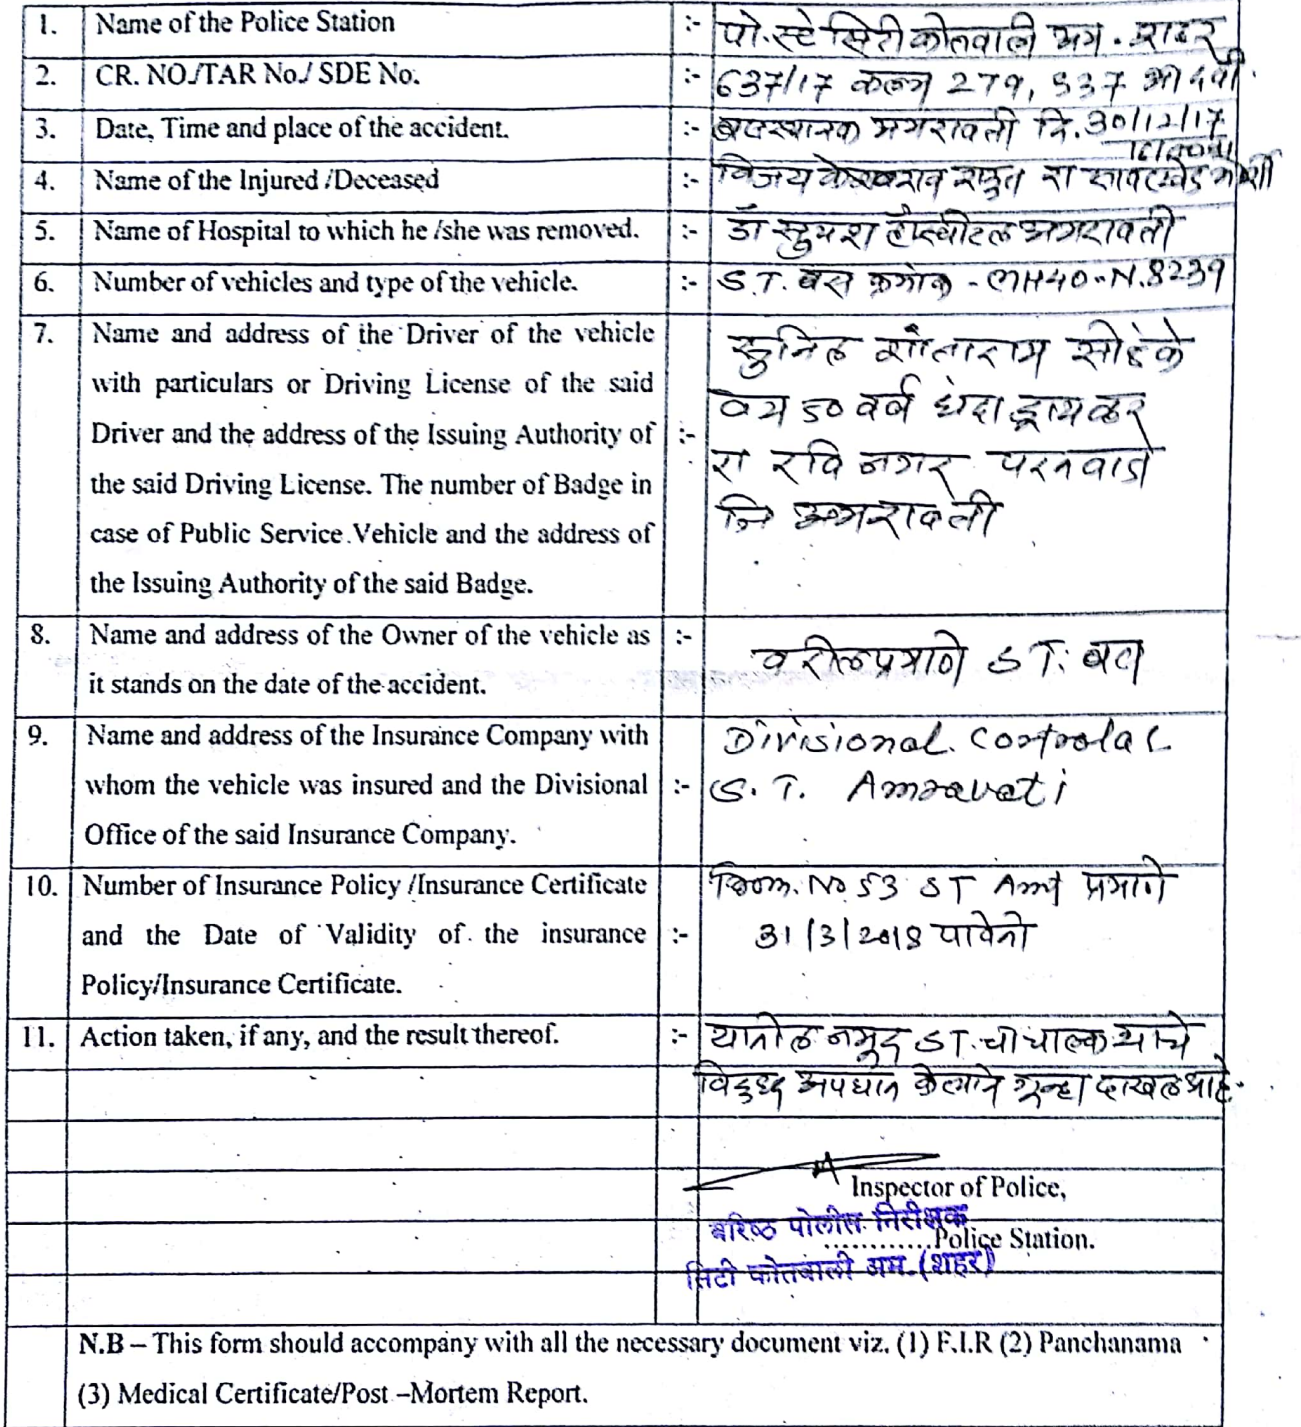 1. Name of the Police Station :- पो.स्टे सिटी कोतवाली अम. शहर
2. CR. NO./TAR No./ SDE No. :- 637/17 कलम 279, 337 भादवी
3. Date, Time and place of the accident. :- बसस्थानक अमरावती दि. 30/12/17
4. Name of the Injured /Deceased :- विजय केशवराव राऊत रा
5. Name of Hospital to which he /she was removed. :- डॉ सुयश हॉस्पीटल अमरावती
6. Number of vehicles and type of the vehicle. :- S.T. बस क्रमांक - MH40-N.8239
7. Name and address of the Driver of the vehicle
with particulars or Driving License of the said
Driver and the address of the Issuing Authority of :-
the said Driving License. The number of Badge in
case of Public Service Vehicle and the address of
the Issuing Authority of the said Badge.
सुनिल शांताराम
वय 50 वर्ष धंदा ड्रायव्हर
रा रवि नगर परतवाडा
जि अमरावती
8. Name and address of the Owner of the vehicle as :-
it stands on the date of the accident.
वरीलप्रमाणे S T. बस
9. Name and address of the Insurance Company with
whom the vehicle was insured and the Divisional :-
Office of the said Insurance Company.
Divisional. Controlar
S. T. Amravati
10. Number of Insurance Policy /Insurance Certificate
and the Date of Validity of the insurance :-
Policy/Insurance Certificate.
No 53 ST Amt प्रमाणे
31/3/2018 पावेतो
11. Action taken, if any, and the result thereof. :- यातील नमुद ST. चा चालक याचे
विरुध्द अपघात केल्याने गुन्हा दाखल आहे.
Inspector of Police,
वरिष्ठ पोलीस निरीक्षक
............Police Station.
सिटी कोतवाली अम. (शहर)
N.B – This form should accompany with all the necessary document viz. (1) F.I.R (2) Panchanama
(3) Medical Certificate/Post –Mortem Report.